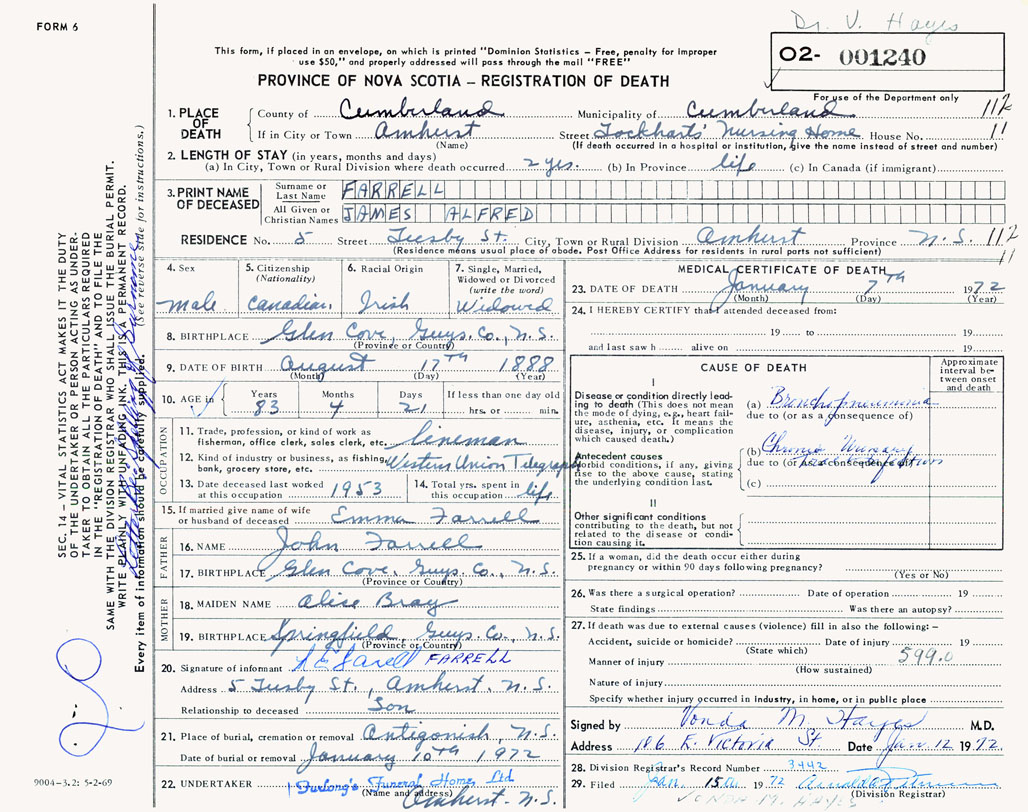 FORM 6
Dr. V. Hayes
This form, if placed in an envelope, on which is printed "Dominion Statistics – Free, penalty for improper
use $50," and properly addressed will pass through the mail "FREE"
O2- 001240
PROVINCE OF NOVA SCOTIA – REGISTRATION OF DEATH
For use of the Department only
1. PLACE OF DEATH
County of Cumberland Municipality of Cumberland 112
If in City or Town Amherst Street Lockharts' Nursing Home House No. 11
(Name) (If death occurred in a hospital or institution, give the name instead of street and number)
2. LENGTH OF STAY (in years, months and days)
(a) In City, Town or Rural Division where death occurred 2 yrs. (b) In Province life (c) In Canada (if immigrant)
3. PRINT NAME OF DECEASED
Surname or Last Name FARRELL
All Given or Christian Names JAMES ALFRED
RESIDENCE No. 5 Street St. City, Town or Rural Division Amherst Province N.S. 112
(Residence means usual place of abode. Post Office Address for residents in rural parts not sufficient) 11
4. Sex Male
5. Citizenship (Nationality) Canadian
6. Racial Origin Irish
7. Single, Married, Widowed or Divorced (write the word) Widowed
8. BIRTHPLACE Glen Cove, Guys. Co., N.S.
(Province or Country)
9. DATE OF BIRTH August 17TH 1888
(Month) (Day) (Year)
10. AGE in Years 83 Months 4 Days 21 If less than one day old hrs. or min.
OCCUPATION
11. Trade, profession, or kind of work as
fisherman, office clerk, sales clerk, etc. lineman
12. Kind of industry or business, as fishing,
bank, grocery store, etc. Western Union Telegraph
13. Date deceased last worked
at this occupation 1953
14. Total yrs. spent in
this occupation life
15. If married give name of wife
or husband of deceased Emma Farrell
FATHER
16. NAME John Farrell
17. BIRTHPLACE Glen Cove, Guys. Co., N.S.
(Province or Country)
MOTHER
18. MAIDEN NAME Alice Bray
19. BIRTHPLACE Springfield, Guys. Co., N.S.
(Province or Country)
20. Signature of informant Farrell FARRELL
Address 5 St., Amherst, N.S.
Relationship to deceased Son
21. Place of burial, cremation or removal Antigonish, N.S.
Date of burial or removal January 10TH 1972
22. UNDERTAKER Furlong's Funeral Home Ltd
(Name and address) Amherst - N.S.
MEDICAL CERTIFICATE OF DEATH
23. DATE OF DEATH January 7TH 1972
(Month) (Day) (Year)
24. I HEREBY CERTIFY that I attended deceased from:
19 to 19
and last saw h alive on 19
CAUSE OF DEATH
Approximate interval between onset and death
I
Disease or condition directly leading to death (This does not mean
the mode of dying, e.g., heart failure, asthenia, etc. It means the
disease, injury, or complication
which caused death.)
(a) Bronchopneumonia
due to (or as a consequence of)
Antecedent causes
Morbid conditions, if any, giving
rise to the above cause, stating
the underlying condition last.
(b) Chronic Urinary
due to (or as a consequence of)
(c)
II
Other significant conditions
contributing to the death, but not
related to the disease or condition causing it.
25. If a woman, did the death occur either during
pregnancy or within 90 days following pregnancy?
(Yes or No)
26. Was there a surgical operation? Date of operation 19
State findings Was there an autopsy?
27. If death was due to external causes (violence) fill in also the following: –
Accident, suicide or homicide? Date of injury 19
(State which) 599.0
Manner of injury
(How sustained)
Nature of injury
Specify whether injury occurred in industry, in home, or in public place
Signed by Vonda M. Hayes M.D.
Address 186 E. Victoria St. Date Jan. 12 1972.
28. Division Registrar's Record Number 3442
29. Filed Jan 15th 1972
(Division Registrar)
VONDA M. HAYES
SEC. 14 – VITAL STATISTICS ACT MAKES IT THE DUTY
OF THE UNDERTAKER OR PERSON ACTING AS UNDER-
TAKER TO OBTAIN ALL THE PARTICULARS REQUIRED
IN THE "REGISTRATION OF DEATH" AND TO FILE THE
SAME WITH THE DIVISION REGISTRAR WHO SHALL ISSUE THE BURIAL PERMIT.
WRITE PLAINLY WITH UNFADING INK. THIS IS A PERMANENT RECORD.
Every item of information should be carefully supplied. (See reverse side for instructions.)
9004-3.2: 5-2-69